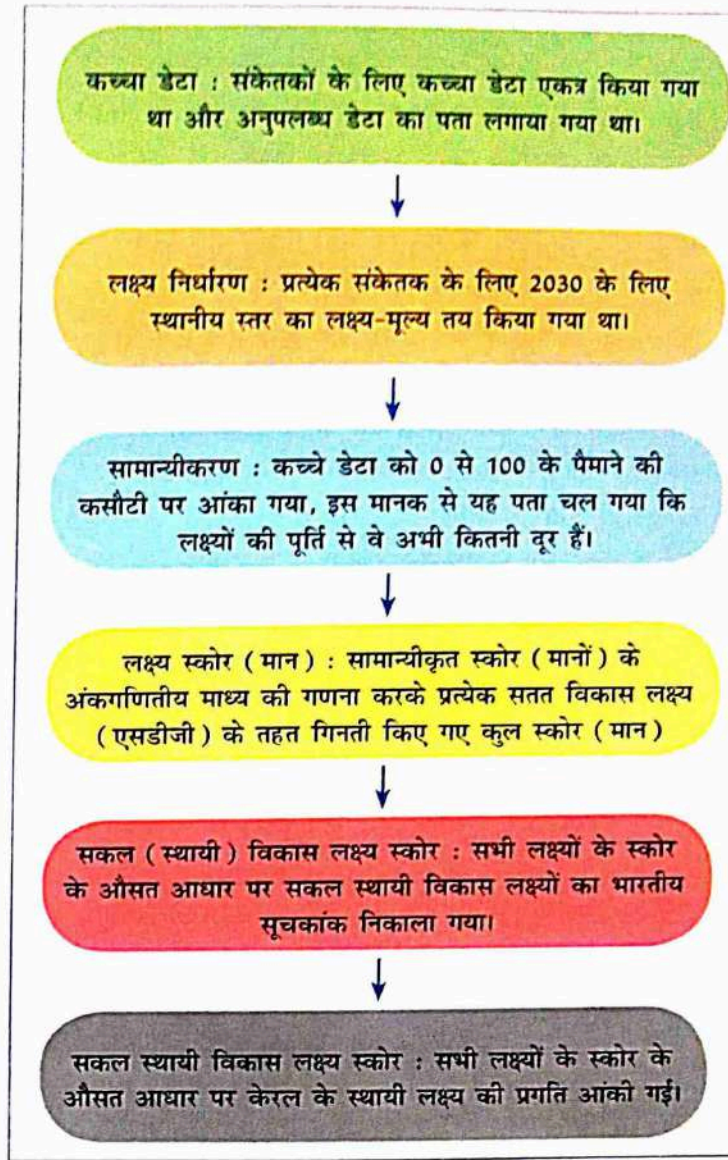 कच्चा डेटा : संकेतकों के लिए कच्चा डेटा एकत्र किया गया
था और अनुपलब्ध डेटा का पता लगाया गया था।
लक्ष्य निर्धारण : प्रत्येक संकेतक के लिए 2030 के लिए
स्थानीय स्तर का लक्ष्य-मूल्य तय किया गया था।
सामान्यीकरण : कच्चे डेटा को 0 से 100 के पैमाने की
कसौटी पर आंका गया, इस मानक से यह पता चल गया कि
लक्ष्यों की पूर्ति से वे अभी कितनी दूर हैं।
लक्ष्य स्कोर ( मान ) : सामान्यीकृत स्कोर ( मानों ) के
अंकगणितीय माध्य की गणना करके प्रत्येक सतत विकास लक्ष्य
( एसडीजी ) के तहत गिनती किए गए कुल स्कोर ( मान )
सकल ( स्थायी ) विकास लक्ष्य स्कोर : सभी लक्ष्यों के स्कोर
के औसत आधार पर सकल स्थायी विकास लक्ष्यों का भारतीय
सूचकांक निकाला गया।
सकल स्थायी विकास लक्ष्य स्कोर : सभी लक्ष्यों के स्कोर के
औसत आधार पर केरल के स्थायी लक्ष्य की प्रगति आंकी गई।